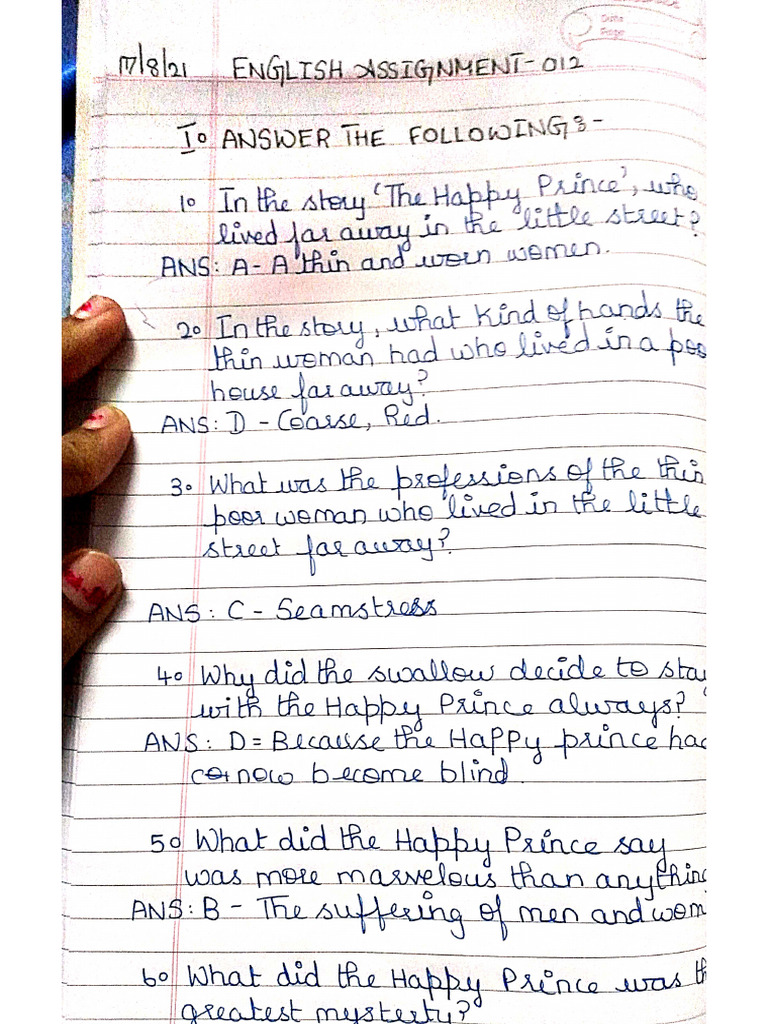 Date
Page
17/8/21 ENGLISH ASSIGNMENT-012
I. ANSWER THE FOLLOWING:-
1. In the story 'The Happy Prince', who
lived far away in the little street?
ANS: A - A thin and worn women.
2. In the story, what kind of hands the
thin woman had who lived in a poo
house far away?
ANS: D - Coarse, Red.
3. What was the professions of the thin
poor woman who lived in the little
street far away?
ANS: C - Seamstress
4. Why did the swallow decide to stay
with the Happy Prince always?
ANS: D = Because the Happy prince had
now become blind.
5. What did the Happy Prince say
was more marvelous than anything
ANS: B - The suffering of men and wom
6. What did the Happy Prince was th
greatest mysterty?